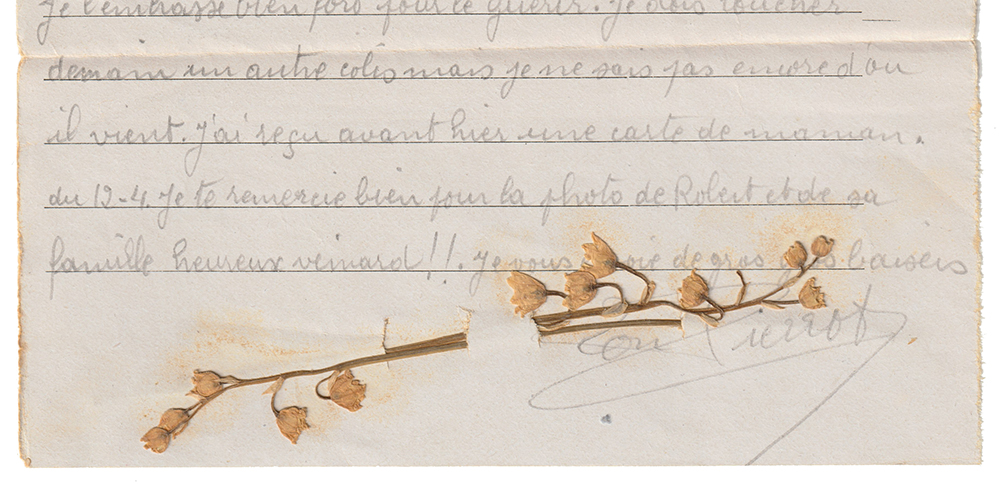 Je l'embrasse bien fort pour le guérir. Je dois toucher
demain un autre colis mais je ne sais pas encore d'ou
il vient. J'ai reçu avant hier une carte de maman.
du 12-4. Je te remercie bien pour la photo de Robert et de sa
famille heureux veinard !!. Je vous envoie de gros gros baisers
Ton Pierrot